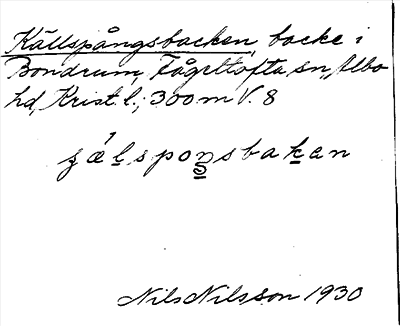 Källspångsbacken, backe i
Bondrum, Fågeltofta sn, Albo
hd, Krist. l.; 300 m V. 8
Nils Nilsson 1930